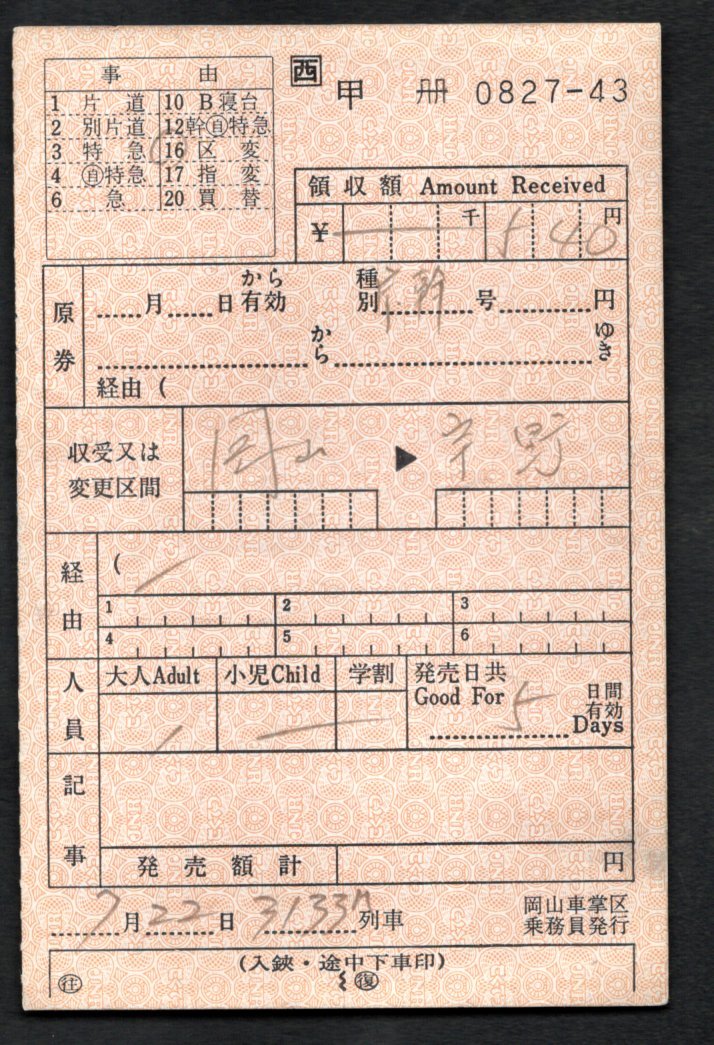 事 由
1 片道 10 B寝台
2 別片道 12幹㊐特急
3 特急 16 区変
4 ㊐特急 17 指変
6 急 20 買替
西 甲 冊 0827-43
領収額 Amount Received
¥ 千 540 円
原券
月 日 から有効 種別 号 円
から ゆき
経由 (
収受又は変更区間
岡山 ▶ 宇野
経由 (
1 2 3
4 5 6
人員
大人Adult 小児Child 学割 発売日共
Good For 5 日間有効
Days
記事
発売額計 円
7月22日 3133M 列車 岡山車掌区
乗務員発行
(入鋏・途中下車印)
往 復